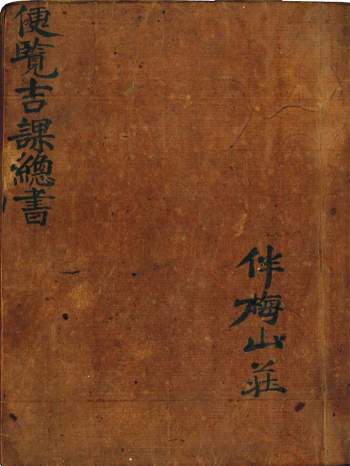 便覧吉課總書
伴梅山莊